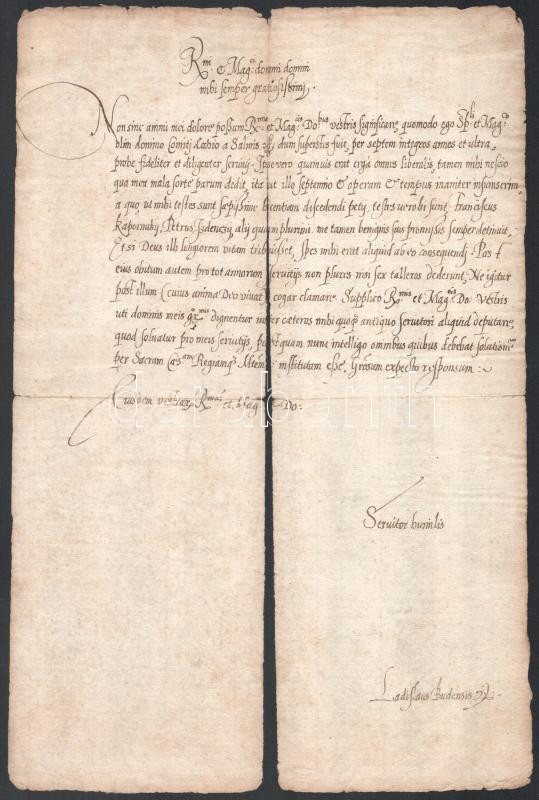 Rmi et Magci domini domini
mihi semper gratiosissimi,
Non sine animi mei dolore possum Rmis et Magcis Do:bus vestris significare, quomodo ego Spli et Magco
olim domino Comiti a Salmis etc, dum superstes fuit, per septem integros annos et ultra,
probe fideliter et diligenter seruiui. Ipse vero quamuis erat erga omnes liberalis, tamen mihi nescio
qua mea mala sorte parum dedit, ita ut illo septennio et operam et tempus inaniter insumserim
a quo, ut mihi testes sunt sæpissime licentiam discedendi petij, testes vero hi sunt, Franciscus
Kapornaky, Petrus, alij quam plurimi. me tamen benignis suis promissis semper detinuit,
Et si Deus illi longiorem vitam tribuisset, spes mihi erat aliquid ab eo consequendi. Post
eius obitum autem pro tot annorum seruitijs non plures nisi sex talleros dederunt, Ne igitur
post illum (cuius anima Deo viuat) cogar clamare. Supplico Rmis et Magcis Do: Vestris
uti dominis meis grmis dignentur inter cæteros mihi quoque antiquo seruitori aliquid deputare,
quod soluatur pro meis seruitijs, postquam nunc intelligo omnibus quibus debebat solutionem
per Sacram Cæsam Regiamque Mtem institutam esse, Grosum expecto responsum:
Earundem vestrarum Rmar et Mag Do:
Seruitor humilis
Ladislaus Budensis
darabanth